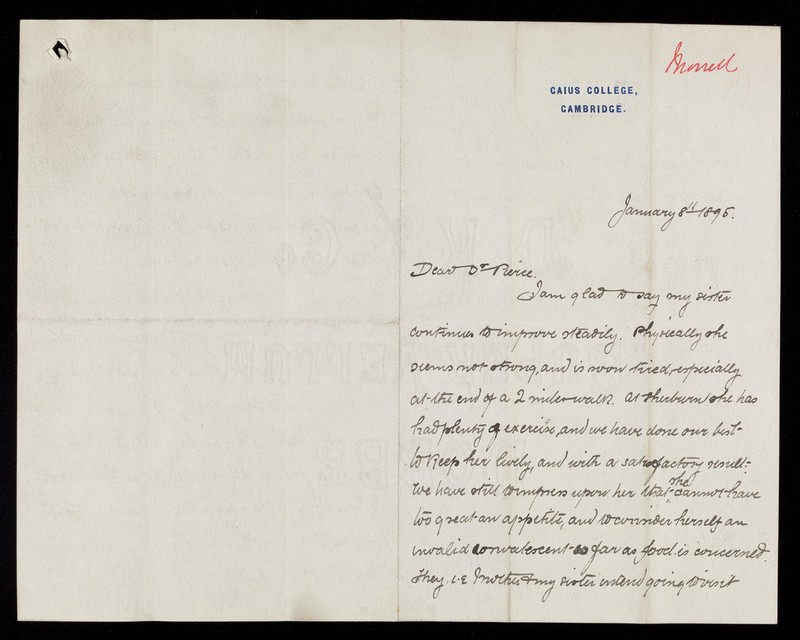 Morrell
CAIUS COLLEGE,
CAMBRIDGE.
January 8th 1895.
Dear Dr Pierce.
I am glad to say my sister
continues to improve steadily. Physically she
seems not strong, and is soon tired, especially
at the end of a 2 miles walk. At Sherburn she has
had plenty of exercise, and we have done our best
to keep her lively, and with a satisfactory result.
We have still to impress upon her that she cannot have
too great an appetite, and to consider herself an
invalid convalescent so far as food is concerned.
They i.e Mother & my sister intend going to visit